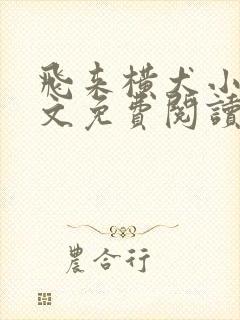 飛来横犬小
文免費閱讀
農合行